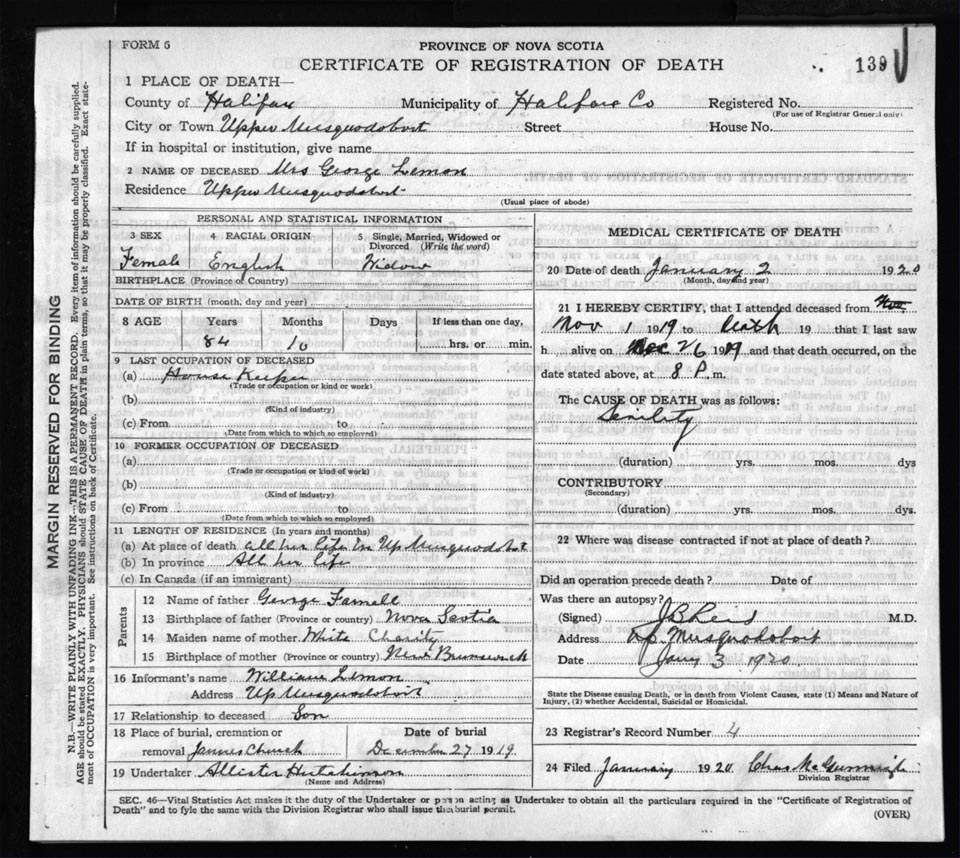 FORM 5
PROVINCE OF NOVA SCOTIA
CERTIFICATE OF REGISTRATION OF DEATH
139
1 PLACE OF DEATH—
County of Halifax Municipality of Halifax Co Registered No.
(For use of Registrar General only)
City or Town Upper Musquodoboit Street House No.
If in hospital or institution, give name
2 NAME OF DECEASED Mrs George Lemon
Residence Upper Musquodoboit
(Usual place of abode)
PERSONAL AND STATISTICAL INFORMATION
3 SEX 4 RACIAL ORIGIN 5 Single, Married, Widowed or Divorced (Write the word)
Female English Widow
BIRTHPLACE (Province or Country)
DATE OF BIRTH (month, day and year)
8 AGE Years Months Days If less than one day,
84 10 hrs. or min.
9 LAST OCCUPATION OF DECEASED
(a) House Keeper
(Trade or occupation or kind or work)
(b)
(Kind of industry)
(c) From to
(Date from which to which so employed)
10 FORMER OCCUPATION OF DECEASED
(a)
(Trade or occupation or kind of work)
(b)
(Kind of industry)
(c) From to
(Date from which to which so employed)
11 LENGTH OF RESIDENCE (In years and months)
(a) At place of death all her life in Up Musquodoboit
(b) In province All her life
(c) In Canada (if an immigrant)
Parents
12 Name of father George Farnell
13 Birthplace of father (Province or country) Nova Scotia
14 Maiden name of mother White Charity
15 Birthplace of mother (Province or country) New Brunswick
16 Informant's name William Lemon
Address Up Musquodoboit
17 Relationship to deceased Son
18 Place of burial, cremation or Date of burial
removal James Church December 27 1919.
19 Undertaker Allister Hutchinson
(Name and Address)
MEDICAL CERTIFICATE OF DEATH
20 Date of death January 2 1920
(Month, day and year)
21 I HEREBY CERTIFY, that I attended deceased from Nov
Nov 1 1919 to Death 19 that I last saw
h alive on Dec 26 1919 and that death occurred, on the
date stated above, at 8 P. m.
The CAUSE OF DEATH was as follows:
Senility
(duration) yrs. mos. dys
CONTRIBUTORY
(Secondary)
(duration) yrs. mos. dys.
22 Where was disease contracted if not at place of death?
Did an operation precede death? Date of
Was there an autopsy?
(Signed) J B Reid M.D.
Address Up Musquodoboit
Date Jany 3 1920
State the Disease causing Death, or in death from Violent Causes, state (1) Means and Nature of
Injury, (2) whether Accidental, Suicidal or Homicidal.
23 Registrar's Record Number 4
24 Filed January 1920 Chas
Division Registrar
SEC. 46—Vital Statistics Act makes it the duty of the Undertaker or person acting as Undertaker to obtain all the particulars required in the "Certificate of Registration of
Death" and to fyle the same with the Division Registrar who shall issue the burial permit.
(OVER)
MARGIN RESERVED FOR BINDING
N.B.—WRITE PLAINLY WITH UNFADING INK—THIS IS A PERMANENT RECORD. Every item of information should be carefully supplied.
AGE should be stated EXACTLY. PHYSICIANS should STATE CAUSE OF DEATH in plain terms, so that it may be properly classified. Exact state-
ment of OCCUPATION is very important. See instructions on back of Certificate.